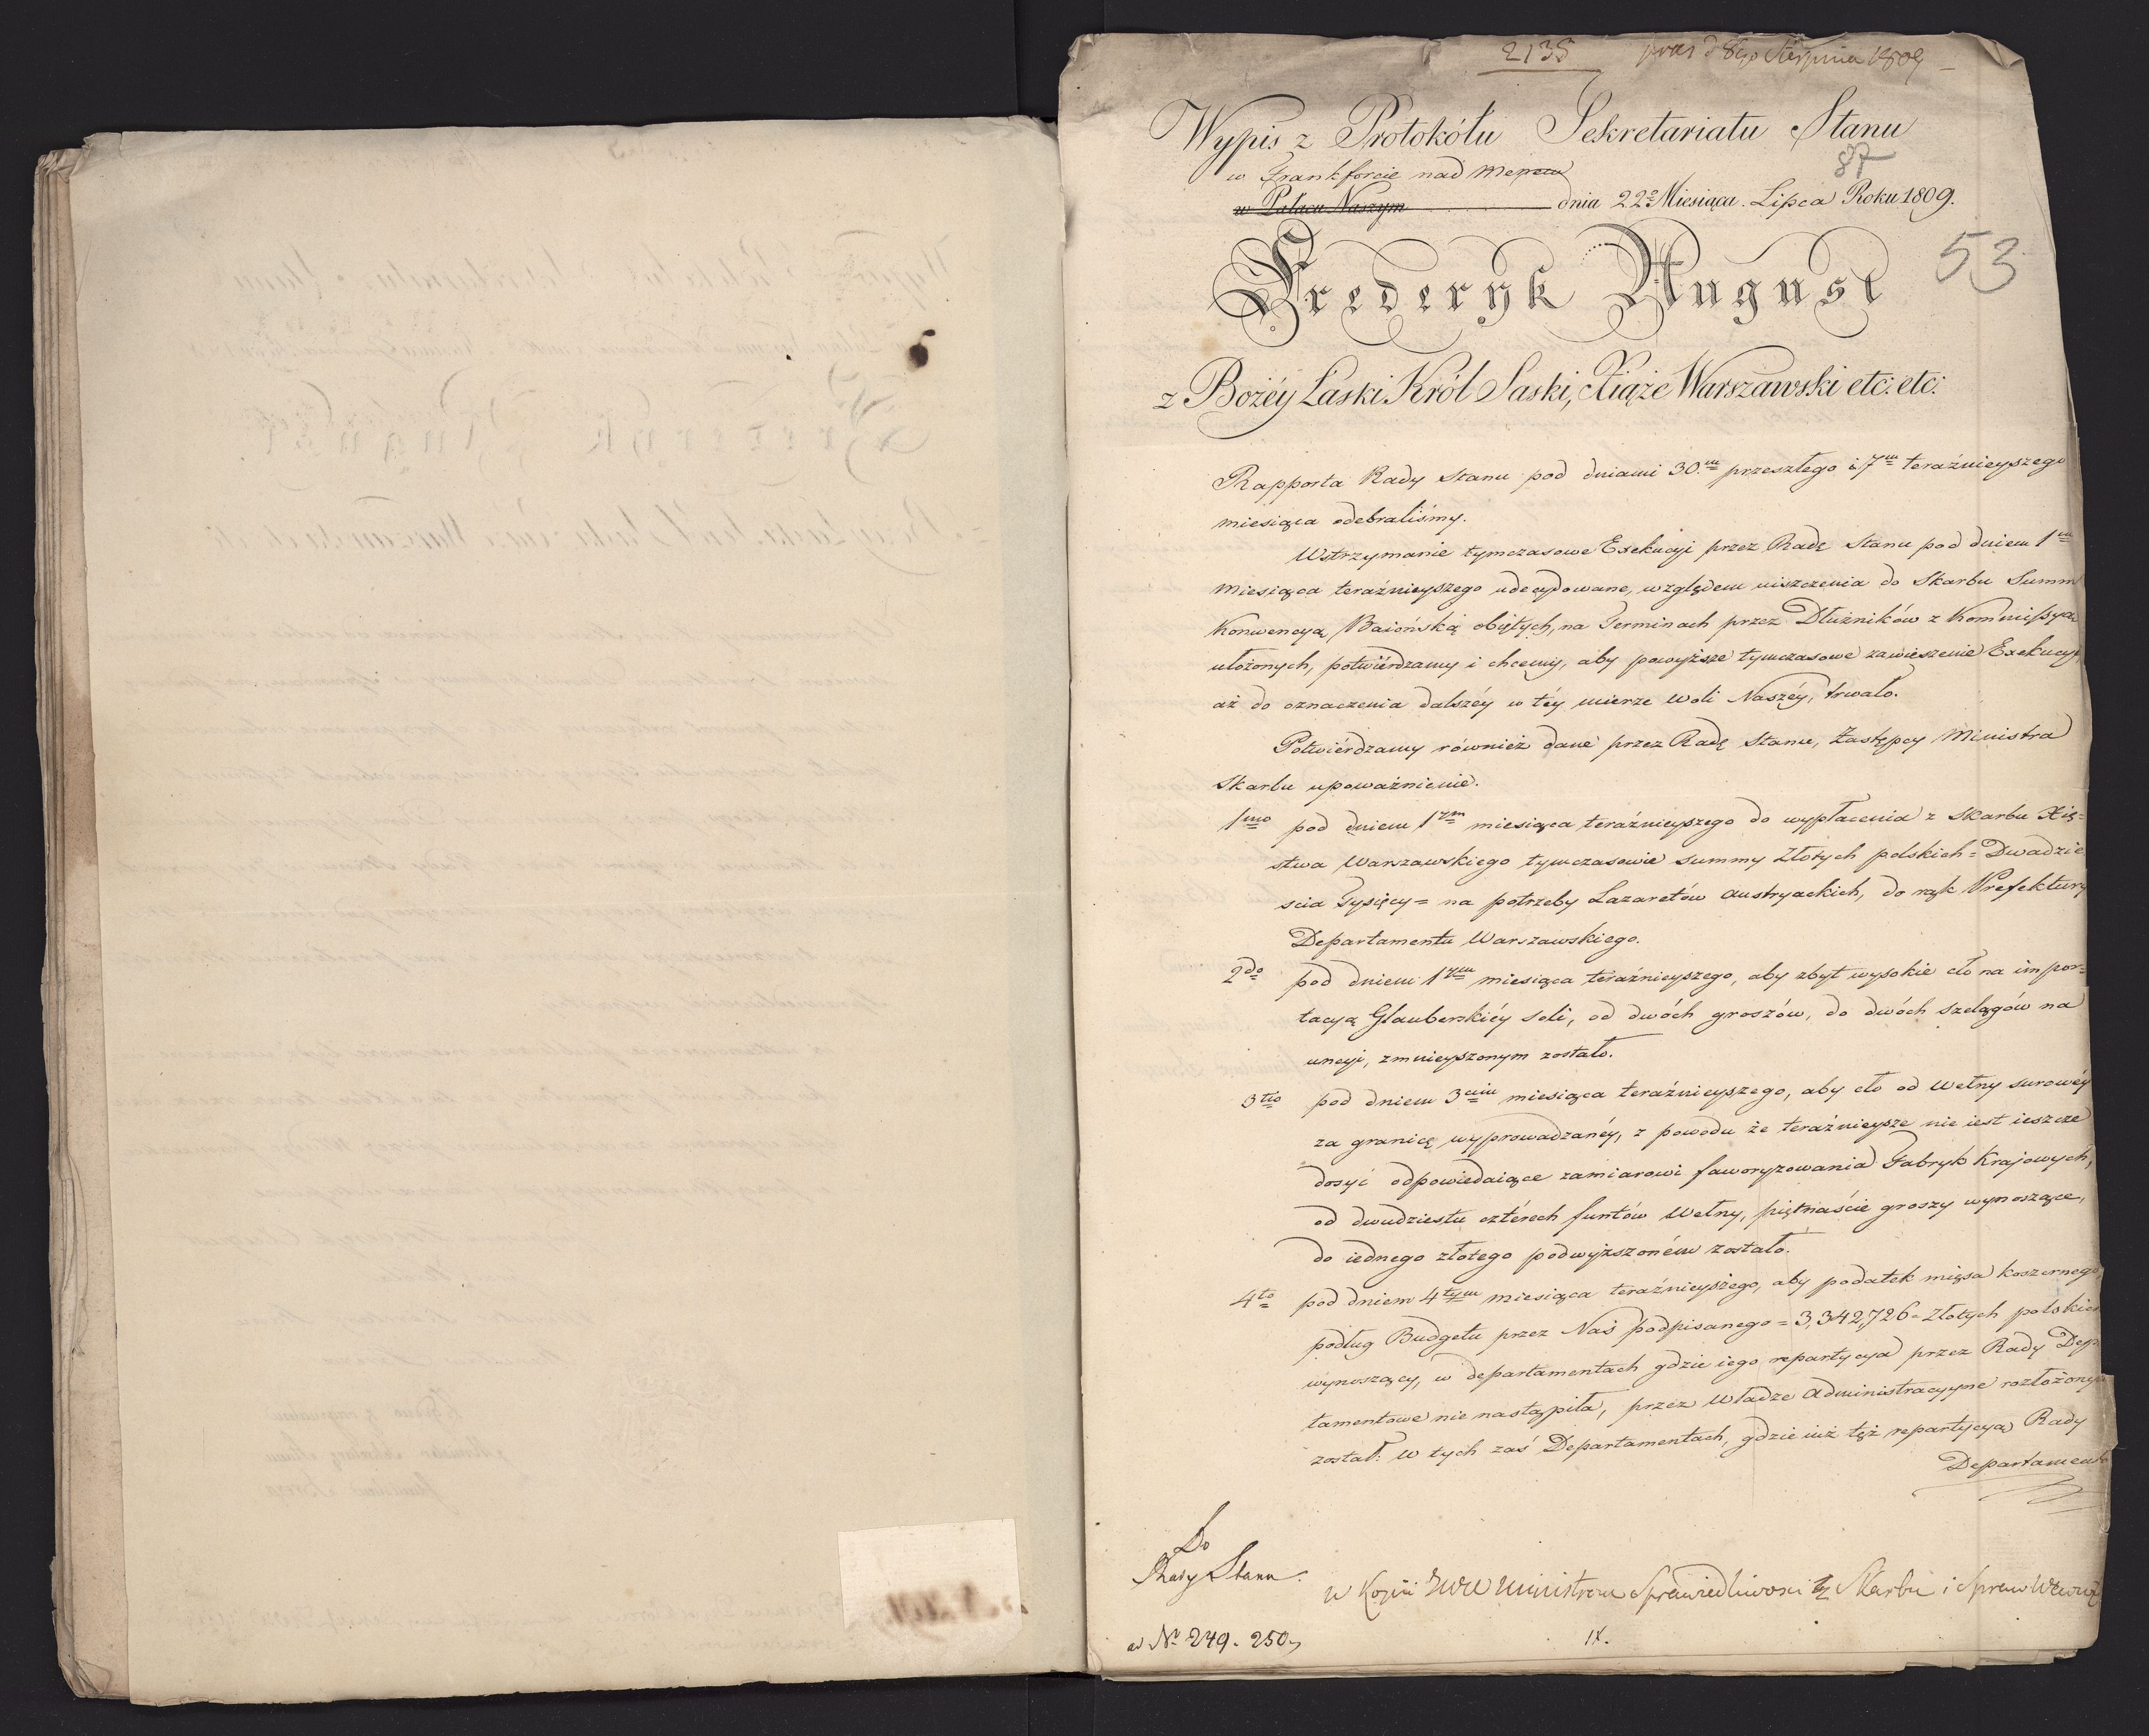 2138 pras d 8go Sierpnia 1809
Wypis z Protokółu Sekretariatu Stanu
87
w Frankforcie nad Menem
w Pałacu Naszym dnia 22º Miesiąca Lipca Roku 1809.
53
Fryderyk August
z Bożéy Łaski Król Saski, Xiąże Warszawski etc: etc:
Rapporta Rady Stanu pod dniami 30.m przeszłego i 7m teraźnieyszego
miesiąca odebraliśmy.
Wstrzymanie tymczasowe Exekucyi przez Radę Stanu pod dniem 1m
miesiąca teraźnieyszego udecydowane, względem uiszczenia do Skarbu Summ
Konwencyą Baiońską obiętych, na Terminach przez Dłużników z Kommissyą
ułożonych, potwiérdzamy i chcemy, aby powyższe tymczasowe zawieszenie Exekucyi,
aż do oznaczenia dalszéy w téy mierze woli Naszéy, trwało.
Potwiérdzamy również dane przez Radę Stanu, Zastępcy Ministra
Skarbu upoważnienie.
1mo pod dniem 1zm miesiąca teraźnieyszego do wypłacenia z Skarbu Xię=
stwa Warszawskiego tymczasowie summy Złotych polskich = Dwadzie
scia Tysięcy = na potrzeby Lazaretów Austryackich, do rąk Prefektury
Departamentu Warszawskiego.
2do pod dniem 1zm miesiąca teraźnieyszego, aby zbyt wysokie cło na impor=
tacyą Glauberskiéy soli, od dwóch groszów, do dwóch szelągów na
uncyi, zmnieyszonym zostało.
3tio pod dniem 3cim miesiąca teraźnieyszego, aby cło od Wełny surowéy
za granicę wyprowadzanéy, z powodu że teraźnieysze nie iest ieszcze
dosyć odpowiedaiące zamiarowi faworyzowania Fabryk Krajowych,
od dwudziestu cztérech funtów Wełny, piętnaście groszy wynoszące,
do iednego złotego podwyższoném zostało.
4to pod dniem 4tym miesiąca teraźnieyszego, aby podatek mięsa koszernego
podług Budgetu przez Nas podpisanego = 3,342,726 = Złotych polskich
wynoszący, w departamentach gdzie iego repartycya przez Rady Depar
tamentowe nie nastąpiła, przez Władze Administracyyne rozłożonym
został: w tych zaś Departamentach, gdzie iuż też repartycyą Rady
Departamento
Do
Rady Stanu.
w Kopii Ministrom Sprawiedliwosci Skarbu i Spraw Wewnę
ad Nr 249. 250.
IX.